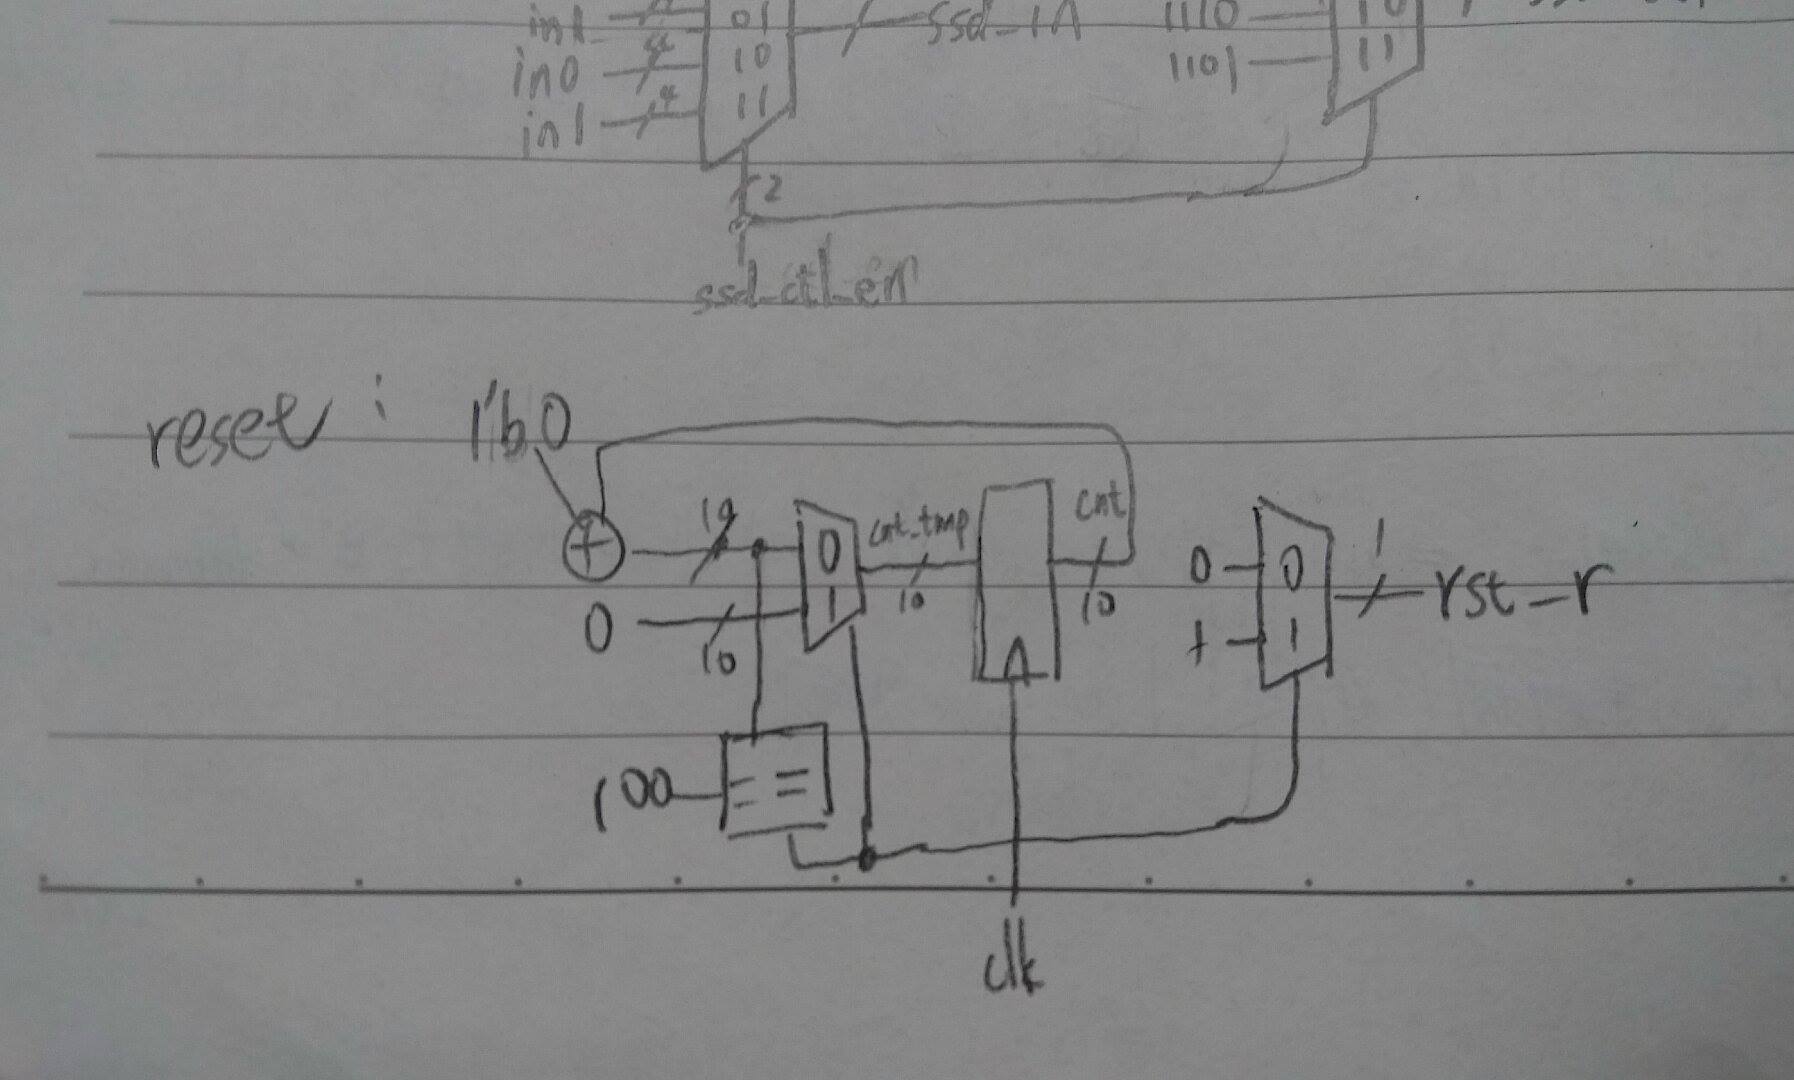 in1 4 01 ssd_1A 1110 10
in0 4 10 1101 11
in1 4 11
2
ssd_ctl_en
reset : 1'b0
+ 10 0 cnt_tmp cnt 0 0 1 rst_r
0 10 1 10 10 1 1
100 ==
clk